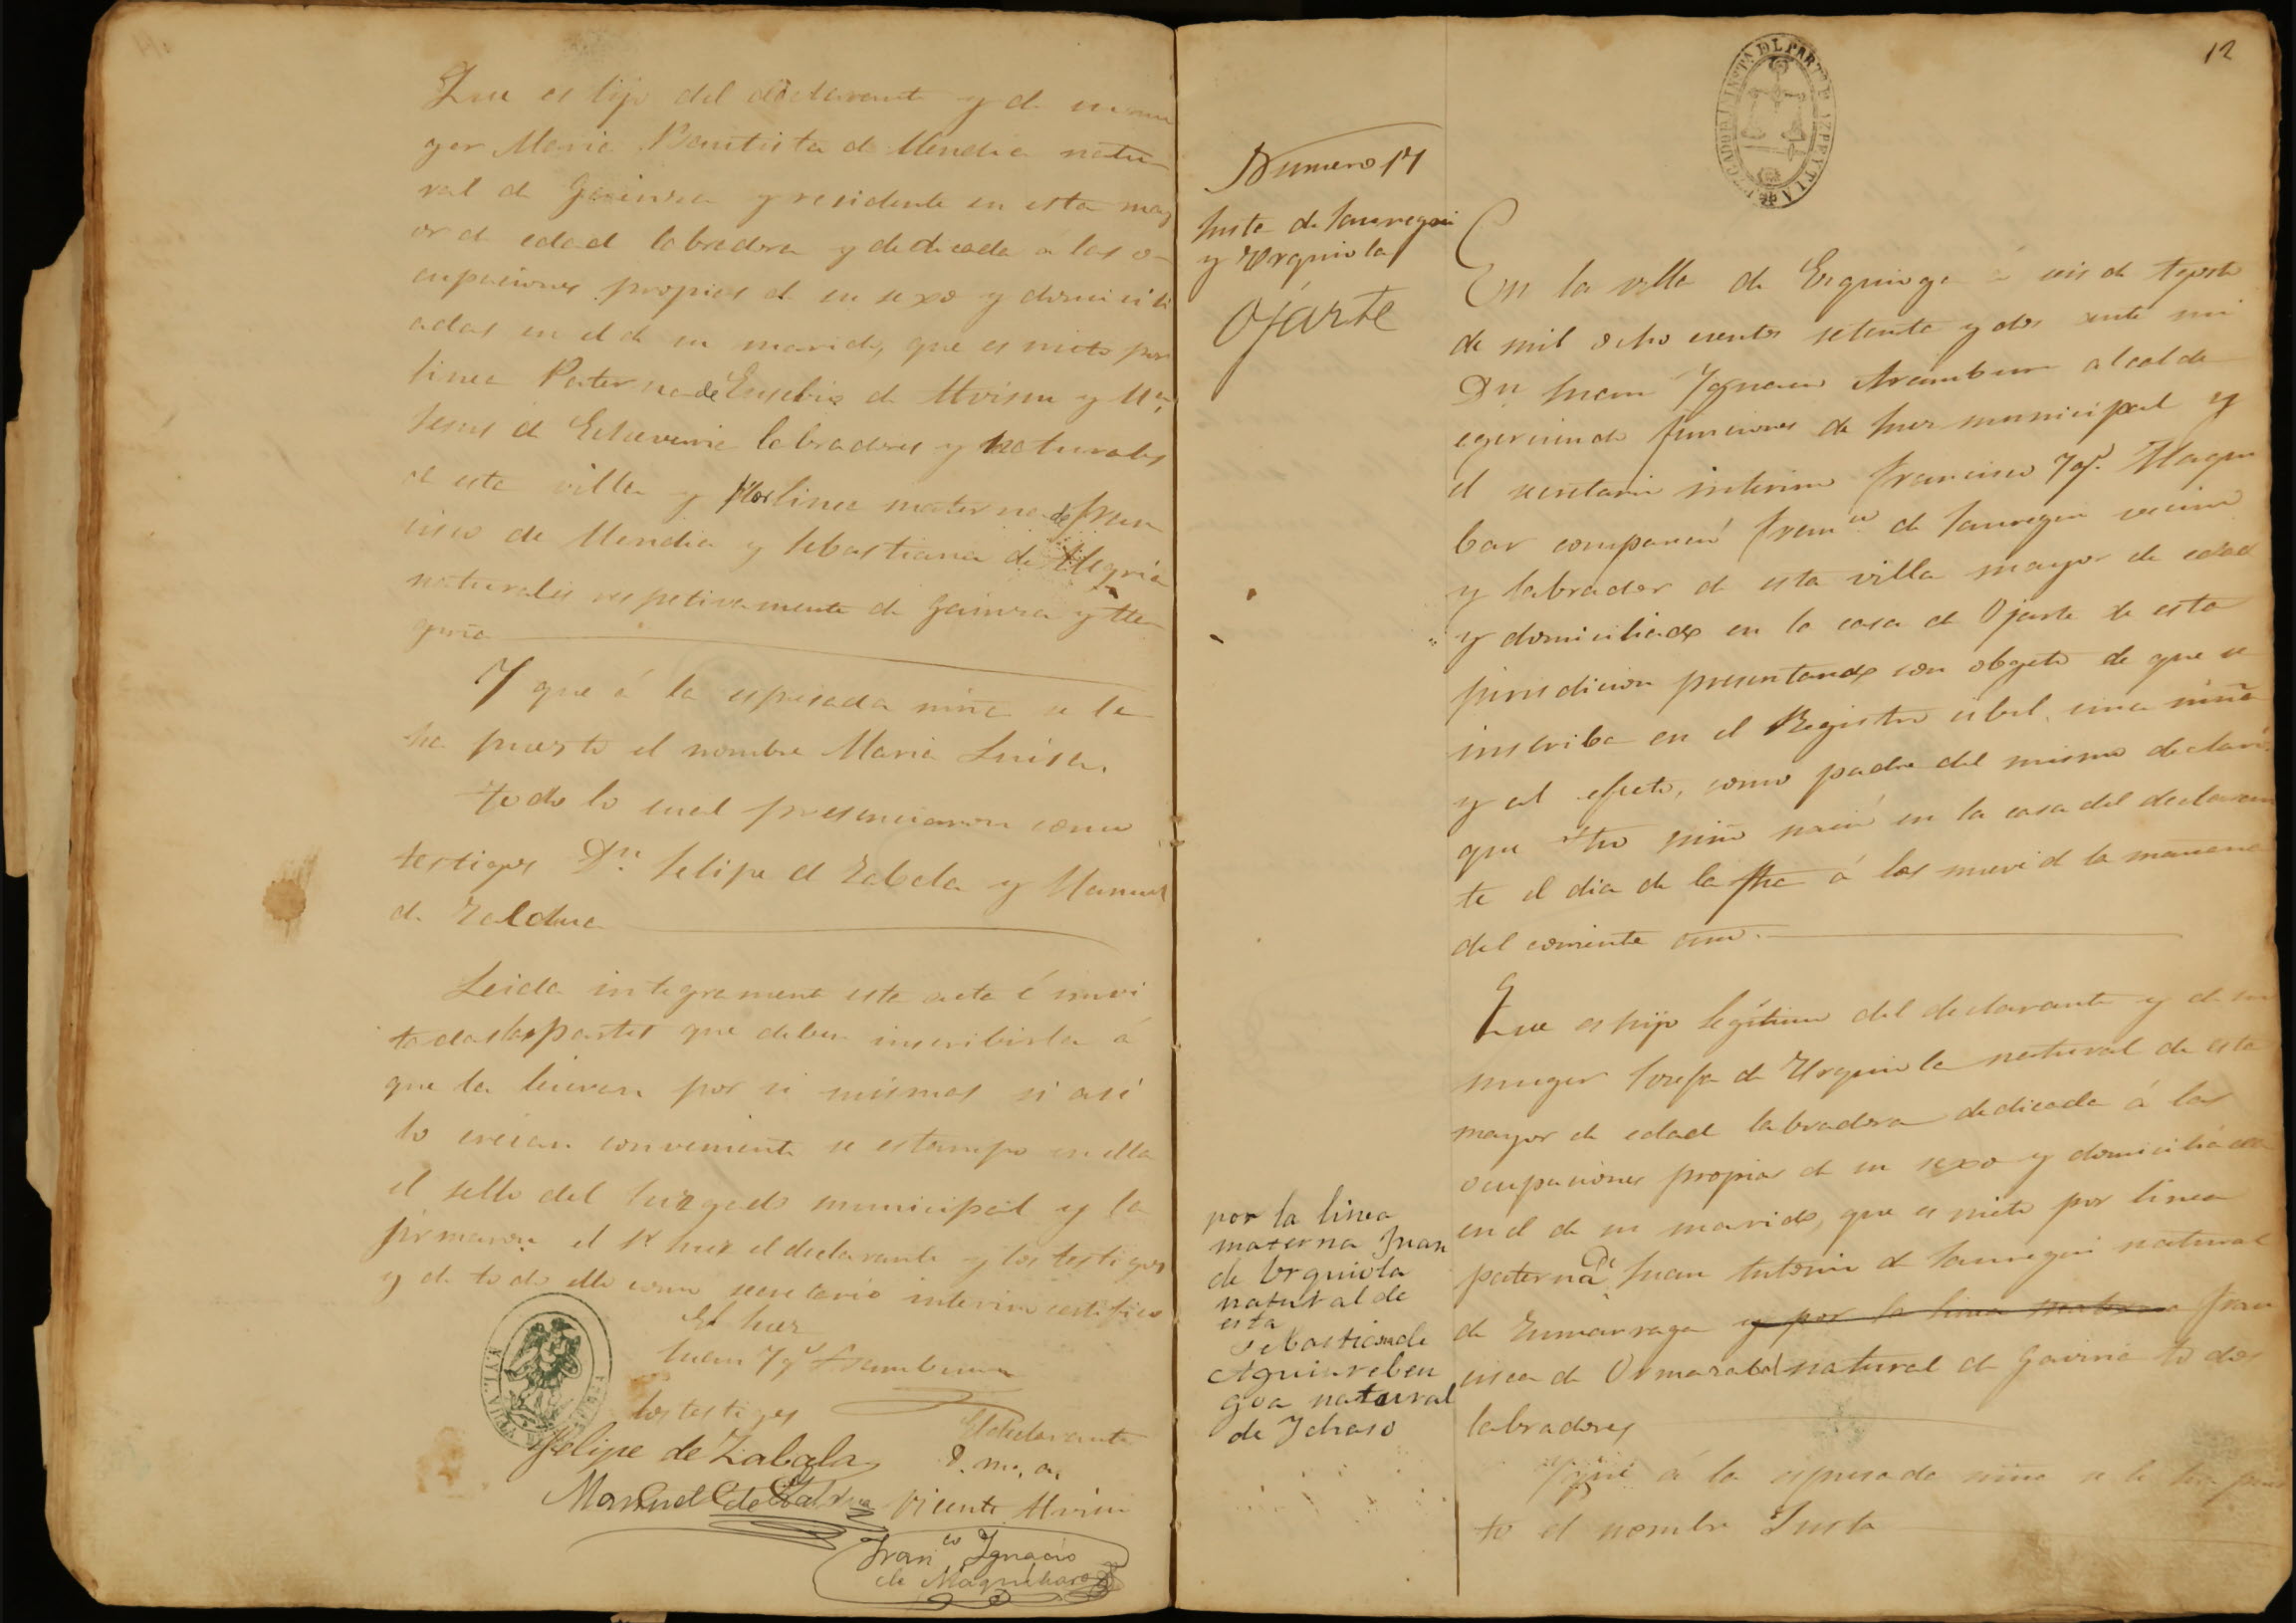 Que es hijo del declarante y de su mu
ger Maria Bautista de Mendia natu-
ral de Gainza y residente en esta may
or de edad labradora y dedicada á las o-
cupaciones propias de su sexo y domicili
adas en el de su marido, que es nieto por
linea Paterna de Eusebio de
Jesus de Echeverria labradores y naturales
de esta villa y por linea materna de Fran
cisco de Mendia y Sebastiana de Alegria
naturales respetivamente de Gainza y Ale-
gria
Y que á la espresada niña se le
ha puesto el nombre Maria Luisa.
todo lo cual presenciaron como
testigos Dn. Felipe de Zabala y Manuel
de Zaldua
Leida integramente esta acta é invi
tadas las partes que deben inscribirla á
que la leieran por si mismas si asi
lo creian conveniente se estampo en ella
el sello del Juzgado municipal y la
firmaron el Sr Juez el declarante y los testigos
y de todo ello como secretario interino certifico
El Juez
Juan Ygo Aramburu
Los testigos
El declarante
Felipe de Zabala
P. m. a.
Manuel de Zaldua
Vicente
Franco Ygnacio
de Maquibar
12
JUZGADO DE 1A INSTA DEL PARTE AZPEYTIA
Numero 17
Justa de Jauregui
y Urquiola
Ojarte
En la villa de Ezquioga á seis de Agosto
de mil ocho cientos setenta y dos ante mi
Dn Juan Ygnacio Aramburu alcalde
egerciendo funciones de Juez municipal y
el secretario interino Francisco Ygo. Maqui
bar compareció Franco de Jauregui vecino
y labrador de esta villa mayor de edad
y domiciliado en la casa de Ojarte de esta
jurisdicion presentando con obgeto de que se
inscriba en el Registro cibil una niña
y al efecto, como padre del mismo declaró
que dho niño nació en la casa del declaran
te el dia de la fha á las nueve de la mañana
del corriente año.
Que es hijo legitimo del declarante y de su
muger Josefa de Urquiola natural de esta
mayor de edad labradora dedicada á las
ocupaciones propias de su sexo y domiciliada
en el de su marido, que es nieto por linea
paterna de Juan Antonio de Jauregui natural
de Zumarraga y por la linea materna Fran
cisca de Ormazabal natural de Gaviria todos
labradores
por la linea
materna Juan
de Urquiola
natural de
esta
Sebastiana de
Aguirreben
goa natural
de Ichaso
Y que á la espresada niña se le ha pues
to el nombre Justa